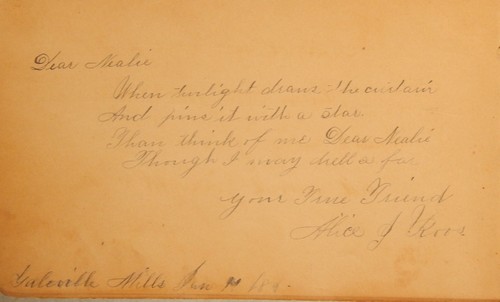 Dear Nealie
When twilight draws the curtain
And pins it with a star.
Than think of me Dear Nealie
Though I may be a far
Your True Friend
Alice J
Mills Jan